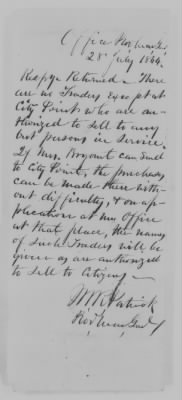 Office Pro. Mar. Genl.
28" July 1864.
Respy Returned — There
are no Traders except at
City Point, who are au-
thorized to sell to any
but persons in service.
If Mrs. Bryant can send
to City Point, the purchases
can be made there with-
out difficulty, & on ap-
plication at my Office
at that place, the names
of such Traders will be
given as are authorized
to sell to Citizens —
M R Patrick
Pro. Mar. Genl